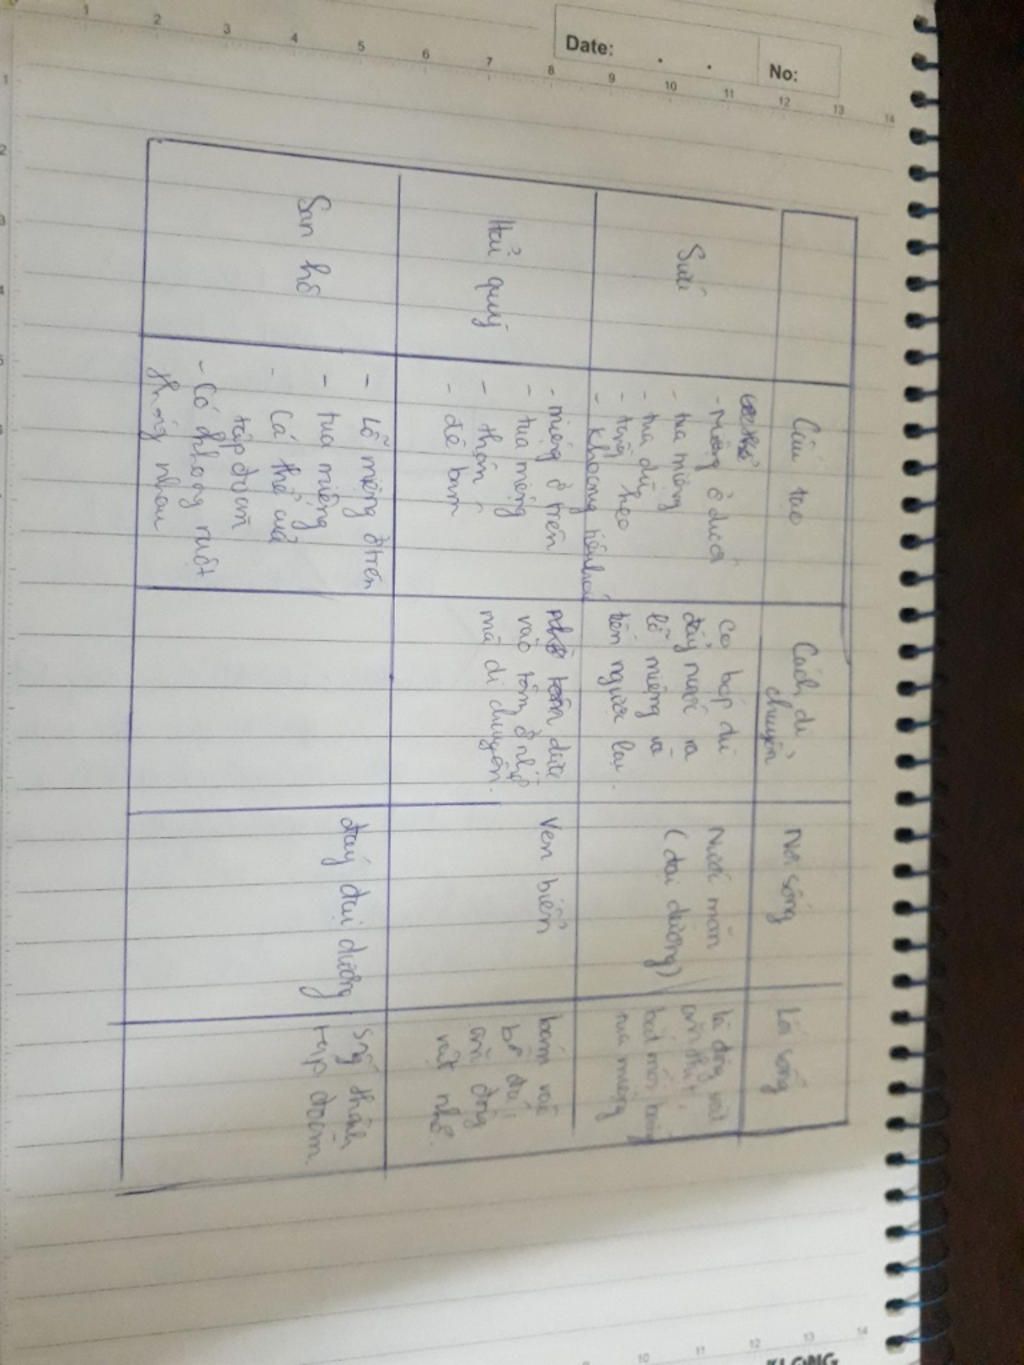 Date:
No:
Cấu tạo
Cách di
chuyển
Nơi sống
Lối sống
Sứa
- miệng ở dưới
- tua miệng
- tua dù
- tầng keo
- khoang tiêu hoá
co bóp dù
đẩy nước ra
lỗ miệng và
tiến ngược lại.
Nước mặn
(đại dương)
là động vật
ăn thịt,
bắt mồi bằng
tua miệng
Hải quỳ
- miệng ở trên
- tua miệng
- thân
- đế bám
dựa
vào tôm ở nhờ
mà di chuyển.
Ven biển
bám vào
bờ đá,
ăn động
vật nhỏ.
San hô
- Lỗ miệng ở trên
- tua miệng
- Cá thể của
tập đoàn
- Có khoang ruột
thông nhau
đáy đại dương
sống thành
tập đoàn.
KLONG